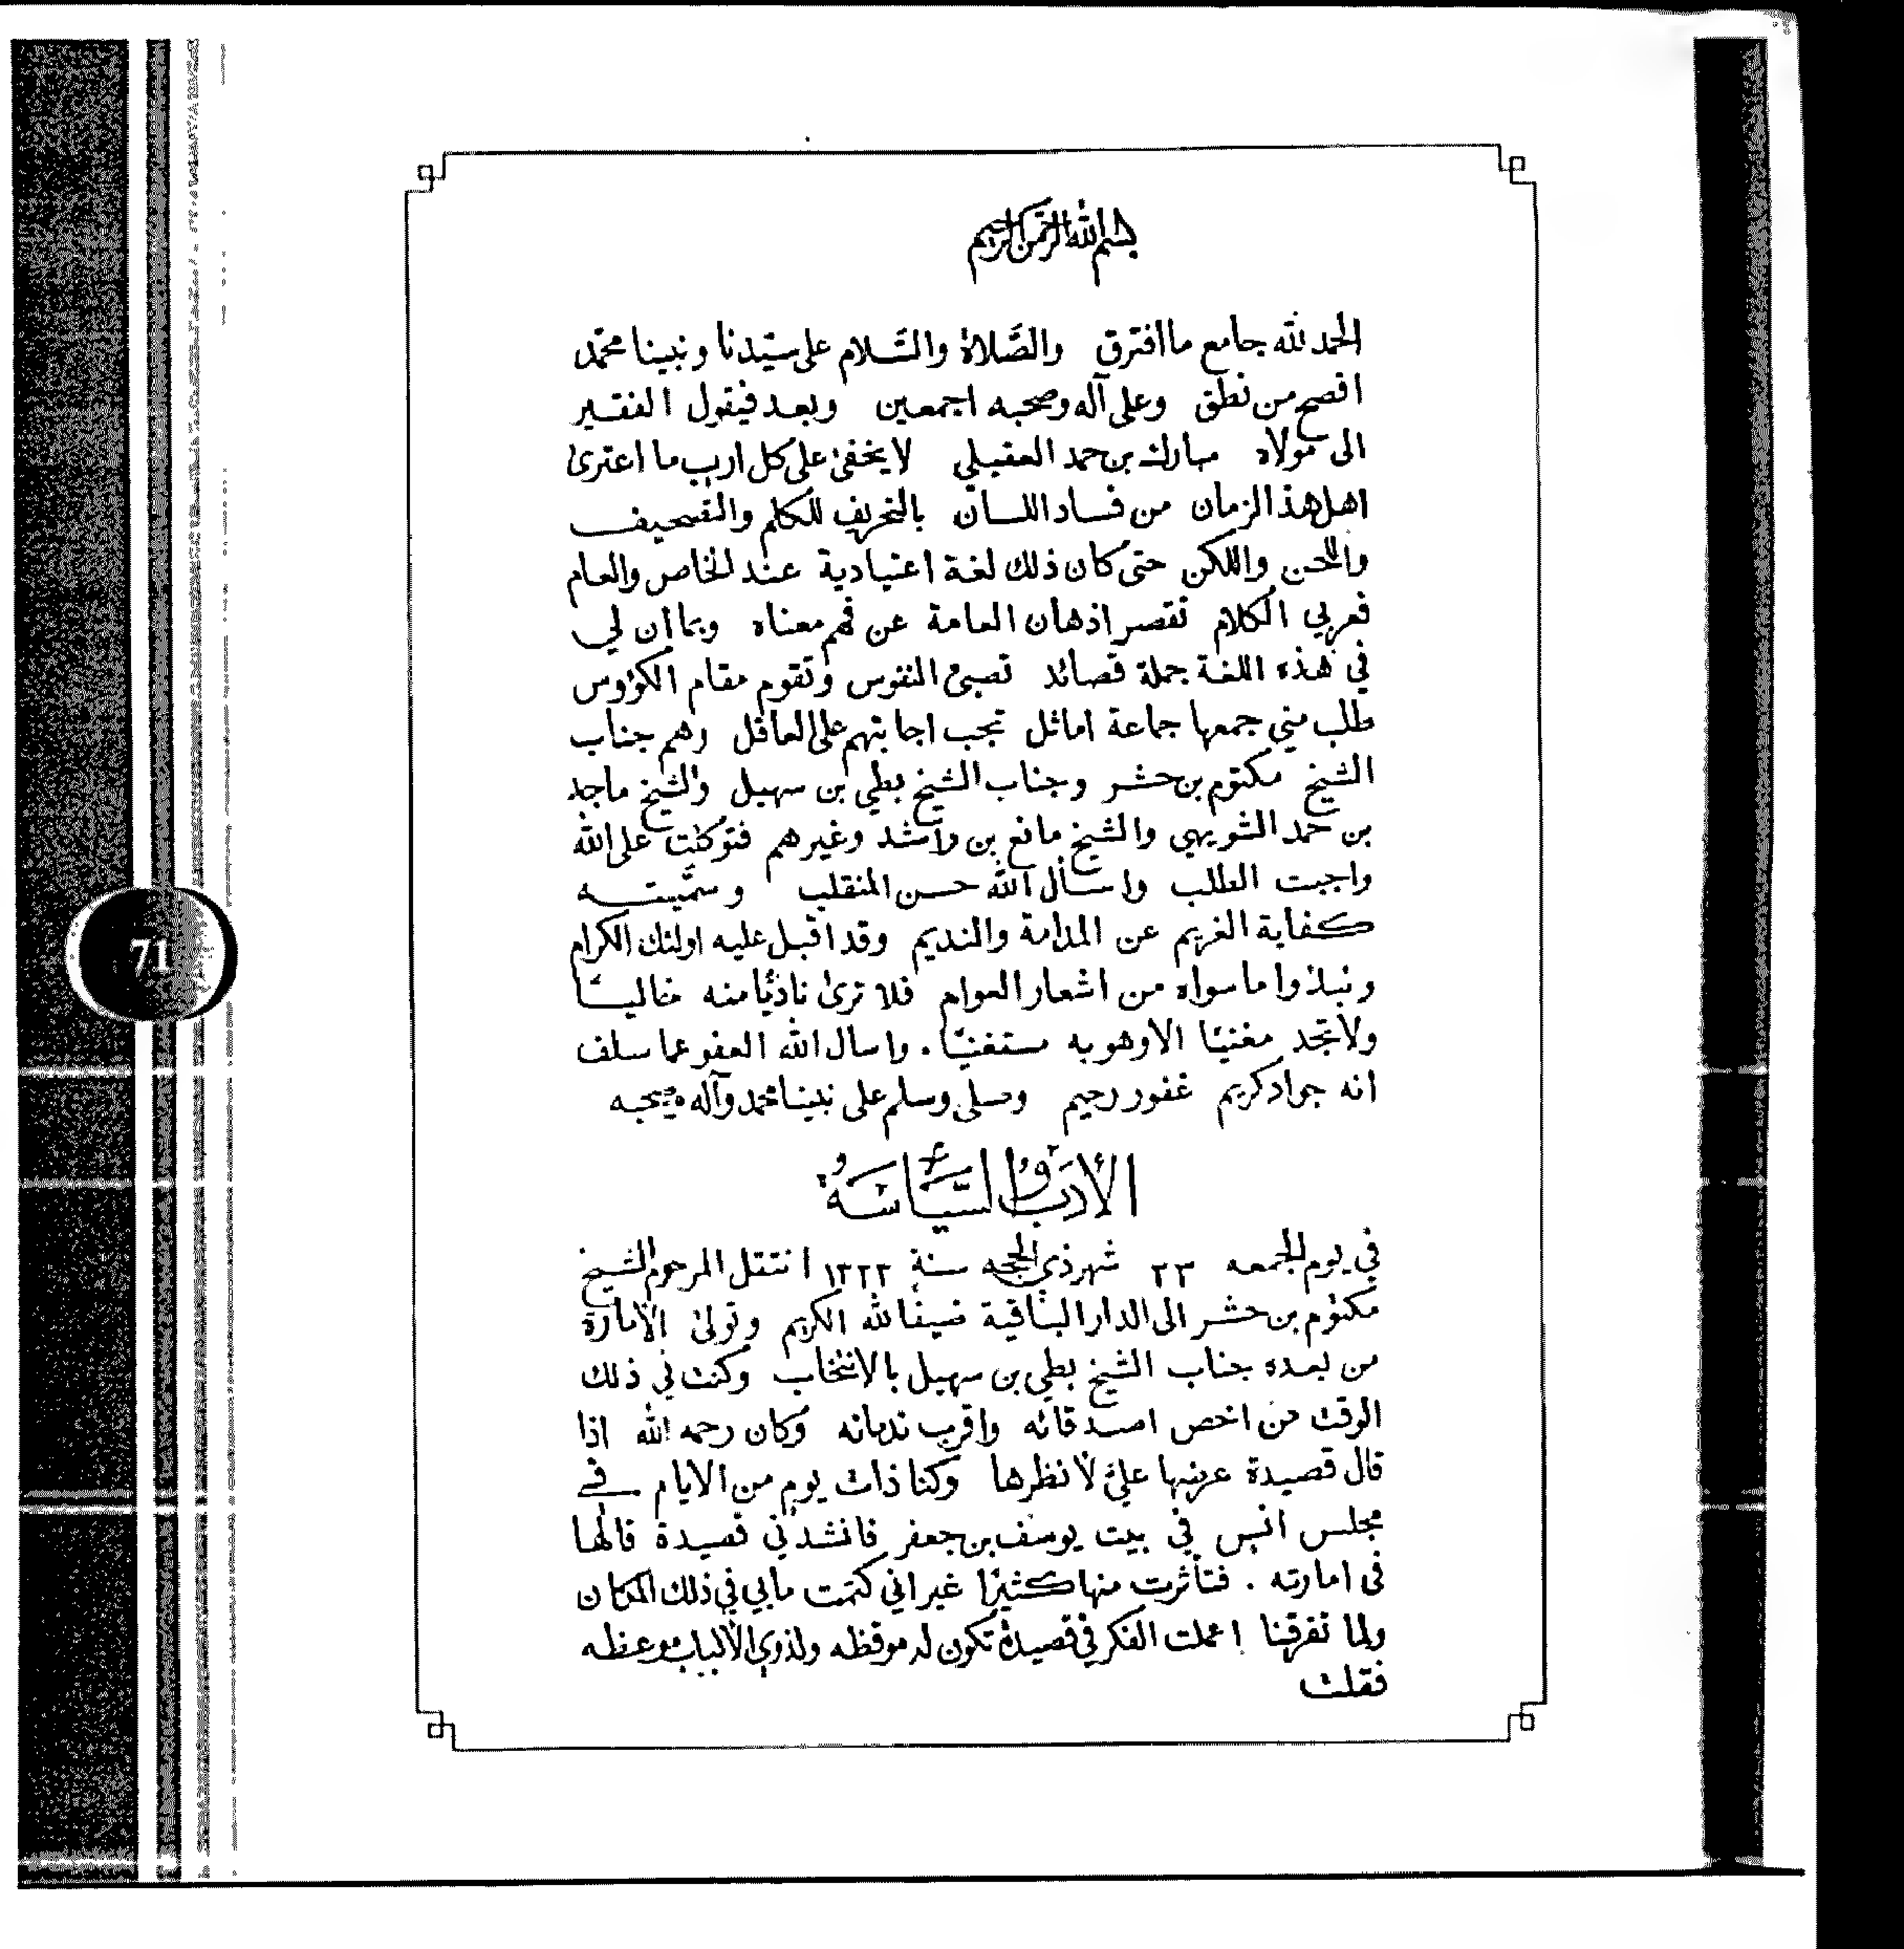 بسم الله الرحمن الرحيم
الحمد لله جامع ما افترق والصَّلاة والسَّلام على سيّدنا ونبينا محمّد
افصح من نطق وعلى آله وصحبه اجمعين وبعد فيقول الفقير
الى مولاه مبارك بن حمد العقيلي لا يخفى على كل ارب ما اعترى
اهل هذا الزمان من فساد اللسان بالتحريف للكلم والتصحيف
واللحن واللكن حتى كان ذلك لغة اعتيادية عند الخاص والعام
فعربي الكلام تقصر اذهان العامة عن فهم معناه وبما ان لي
في هذه اللغة جملة قصائد تصبي النفوس وتقوم مقام الكؤوس
طلب مني جمعها جماعة اماثل تجب اجابتهم على العاقل وهم جناب
الشيخ مكتوم بن حشر وجناب الشيخ بطي بن سهيل والشيخ ماجد
بن حمد الشويهي والشيخ مانع بن راشد وغيرهم فتوكلت على الله
واجبت الطلب واسأل الله حسن المنقلب وسمّيته
كفاية الغريم عن المدامة والنديم وقد اقبل عليه اولئك الكرام
ونبذوا ما سواه من اشعار العوام فلا ترى ناديًا منه خاليًا
ولا تجد مغنيًا الا وهو به مستغنيًا. واسال الله العفو عما سلف
انه جواد كريم غفور رحيم وصلى وسلم على نبينا محمد وآله وصحبه
الأدب والسياسة
في يوم الجمعه ٢٣ شهر ذي الحجه سنة ١٣٢٣ انتقل المرحوم الشيخ
مكتوم بن حشر الى الدار الباقية ضيفا لله الكريم وتولى الامارة
من بعده جناب الشيخ بطي بن سهيل بالانتخاب وكنت في ذلك
الوقت من اخص اصدقائه واقرب ندمائه وكان رحمه الله اذا
قال قصيدة عرضها عليَّ لانظرها وكنا ذات يوم من الايام في
مجلس انس في بيت يوسف بن جعفر فانشدني قصيدة قالها
فى امارته. فتأثرت منها كثيرًا غير اني كتمت ما بي في ذلك المكان
ولما تفرقنا اعملت الفكر في قصيدة تكون له موقظه ولذوي الألباب موعظه
فقلت
71